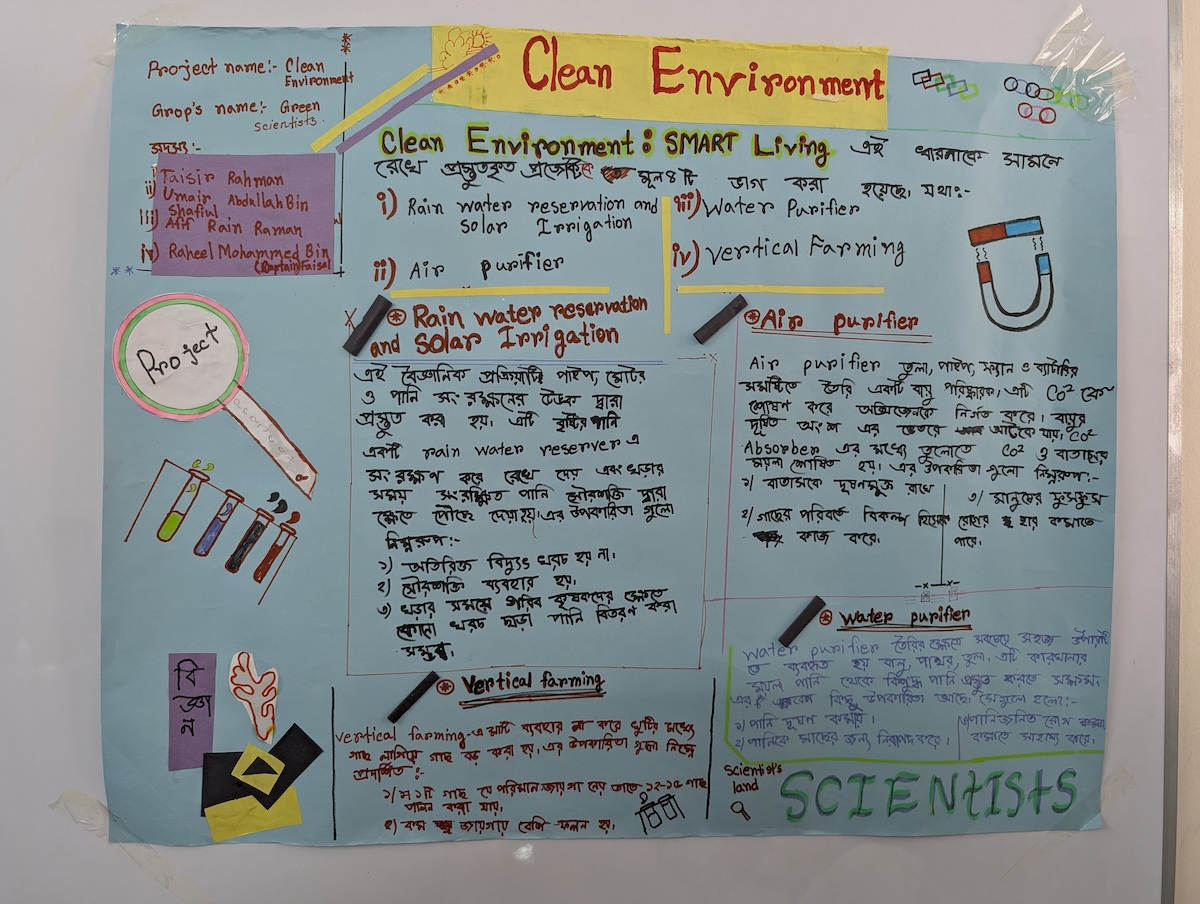 Project name:- Clean
Environment
Grop's name:- Green
Scientists.
সদস্য:-
i) Taisir Rahman
ii) Umair Abdallah Bin
Shafiul
iii) Afif Rain Raman
iv) Raheel Mohammed Bin
(Captain) Faisal
Clean Environment
Clean Environment: SMART Living এই ধারনাকে সামনে
রেখে প্রস্তুতকৃত প্রজেক্টকে মূল ৪টি ভাগ করা হয়েছে। যথা:-
i) Rain water reservation and
solar Irrigation
ii) Air purifier
iii) Water Purifier
iv) vertical Farming
Project
বিজ্ঞান
Rain water reservation
and solar Irrigation
এই বৈজ্ঞানিক প্রক্রিয়াটি পাইপ, মোটর
ও পানি সংরক্ষনের ট্যাংক দ্বারা
প্রস্তুত করা হয়। এটি বৃষ্টির পানি
একটি rain water reserver এ
সংরক্ষণ করে রেখে দেয় এবং খড়ার
সময় সংরক্ষিত পানি সৌরশক্তি দ্বারা
ক্ষেতে পৌঁছে দেয়া হয়। এর উপকারিতা গুলো
নিম্নরূপ:-
১) অতিরিক্ত বিদ্যুৎ খরচ হয় না।
২) সৌরশক্তি ব্যবহার হয়।
৩) খড়ার সময়ে গরিব কৃষকদের ক্ষেতে
কোনো খরচ ছাড়া পানি বিতরণ করা
সম্ভব।
Air purifier
Air purifier তুলা, পাইপ, ফ্যান ও ব্যাটারির
সমষ্টিতে তৈরি একটি বায়ু পরিষ্কারক। এটি Co² কে
শোষণ করে অক্সিজেনকে নির্গত করে। বায়ুর
দূষিত অংশ এর ভেতরে আটকে যায়। Co²
Absorber এর মধ্যে তুলোতে Co² ও বাতাসের
ময়লা শোষিত হয়। এর উপকারিতা গুলো নিম্নরূপ:-
১) বাতাসকে দূষণমুক্ত রাখে
২) গাছের পরিবর্তে বিকল্প হিসেবে
কাজ করে।
৩) মানুষের ফুসফুস
রোগের হার কমাতে
পারে।
vertical farming
vertical farming-এ মাটি ব্যবহার না করে খুটির মধ্যে
গাছ লাগিয়ে গাছ বড় করা হয়। এর উপকারিতা গুলো নিম্নে
প্রদর্শিত:-
১) ১টি গাছ যে পরিমান জায়গা নেয় তাতে ১২-১৫ গাছ
পালন করা যায়,
২) কম জায়গায় বেশি ফলন হয়।
water purifier
water purifier তৈরির ক্ষেত্রে সবচেয়ে সহজ উপায়টি
তে ব্যবহৃত হয় বালু, পাথর, তুলা। এটি কারখানার
ময়লা পানি থেকে বিশুদ্ধ পানি প্রস্তুত করতে সক্ষম।
এর বেশ কিছু উপকারিতা আছে। সেগুলো হলো:-
১) পানি দূষণ কমায়।
২) পানিকে মাছের জন্য নিরাপদ করে।
৩) পানিজনিত রোগ
কমাতে সাহায্য করে।
scientist's
land
SCIENtIStS